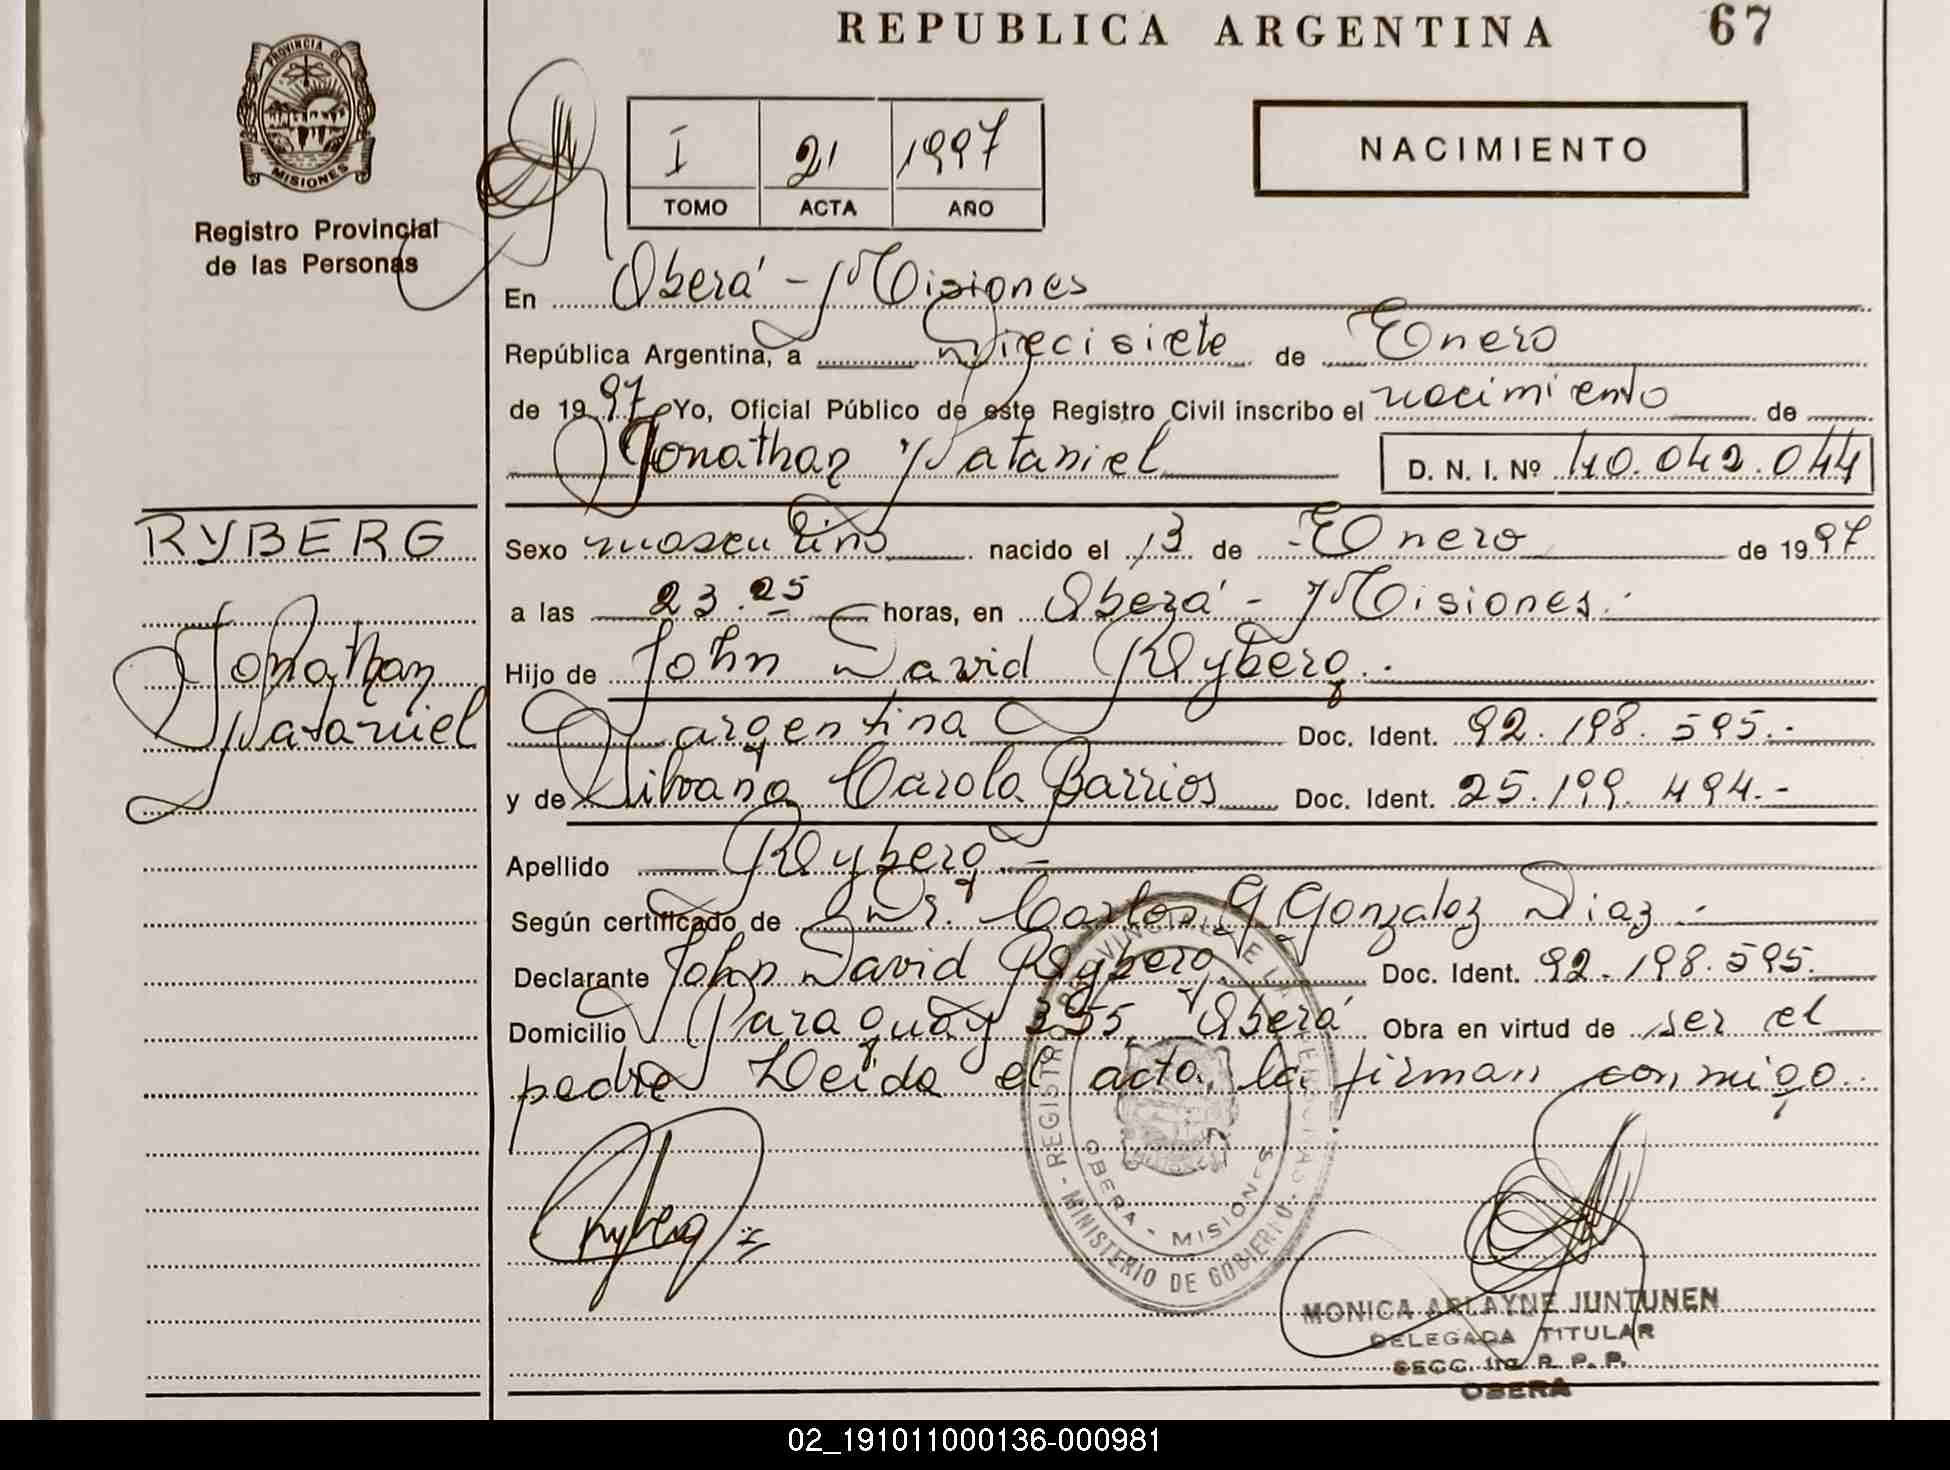 REPUBLICA ARGENTINA 67
PROVINCIA DE
MISIONES
Registro Provincial
de las Personas
I 21 1997
TOMO ACTA AÑO
NACIMIENTO
En Oberá - Misiones
República Argentina, a Diecisiete de Enero
de 1997 Yo, Oficial Público de este Registro Civil inscribo el nacimiento de
Jonathan Nataniel D. N. I. Nº 40.042.044
RYBERG
Jonathan
Nataniel
Sexo masculino nacido el 13 de Enero de 1997
a las 23.25 horas, en Oberá - Misiones.
Hijo de John David Ryberg.
argentina Doc. Ident. 92.198.595.-
y de Silvana Carola Barrios Doc. Ident. 25.199.494.-
Apellido Ryberg.-
Según certificado de Dr. Carlos G Gonzalez Diaz.-
Declarante John David Ryberg. Doc. Ident. 92.198.595.
Domicilio Paraguay 355 Oberá Obra en virtud de ser el
padre. Leida el acta, la firman conmigo.
Ryberg
REGISTRO PROVINCIAL DE LAS PERSONAS
OBERA - MISIONES
MINISTERIO DE GOBIERNO
MONICA ARLAYNE JUNTUNEN
DELEGADA TITULAR
SECC. 1ra R. P. P.
OBERA
02_191011000136-000981